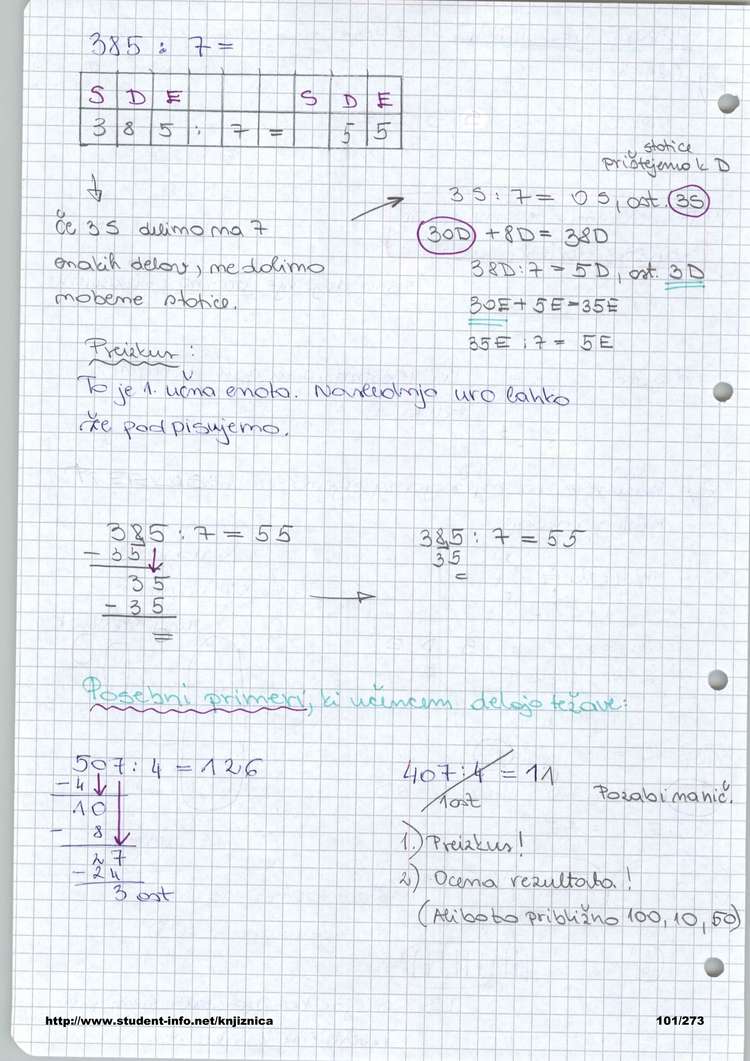 385 : 7 =
S D E S D E
3 8 5 : 7 = 5 5
stotice
prištejemo k D
3S : 7 = 0 S, ost. 3S
Če 3 S delimo na 7
30D + 8D = 38D
enakih delov, ne dolimo
38D : 7 = 5D, ost. 3D
nobene stotice.
30E + 5E = 35E
35E : 7 = 5E
Preizkus :
To je 1. učna enota. Naslednjo uro lahko
že podpisujemo.
385 : 7 = 55
- 35
35
- 35
=
385 : 7 = 55
35
=
Posebni primeri, ki učencem delajo težave:
507 : 4 = 126
- 4
10
- 8
27
- 24
3 ost
407 : 4 = 11
1 ost
Pozabi manič.
1.) Preizkus!
2) Ocena rezultata!
(Ali bo to približno 100, 10, 50)
http://www.student-info.net/knjiznica
101/273